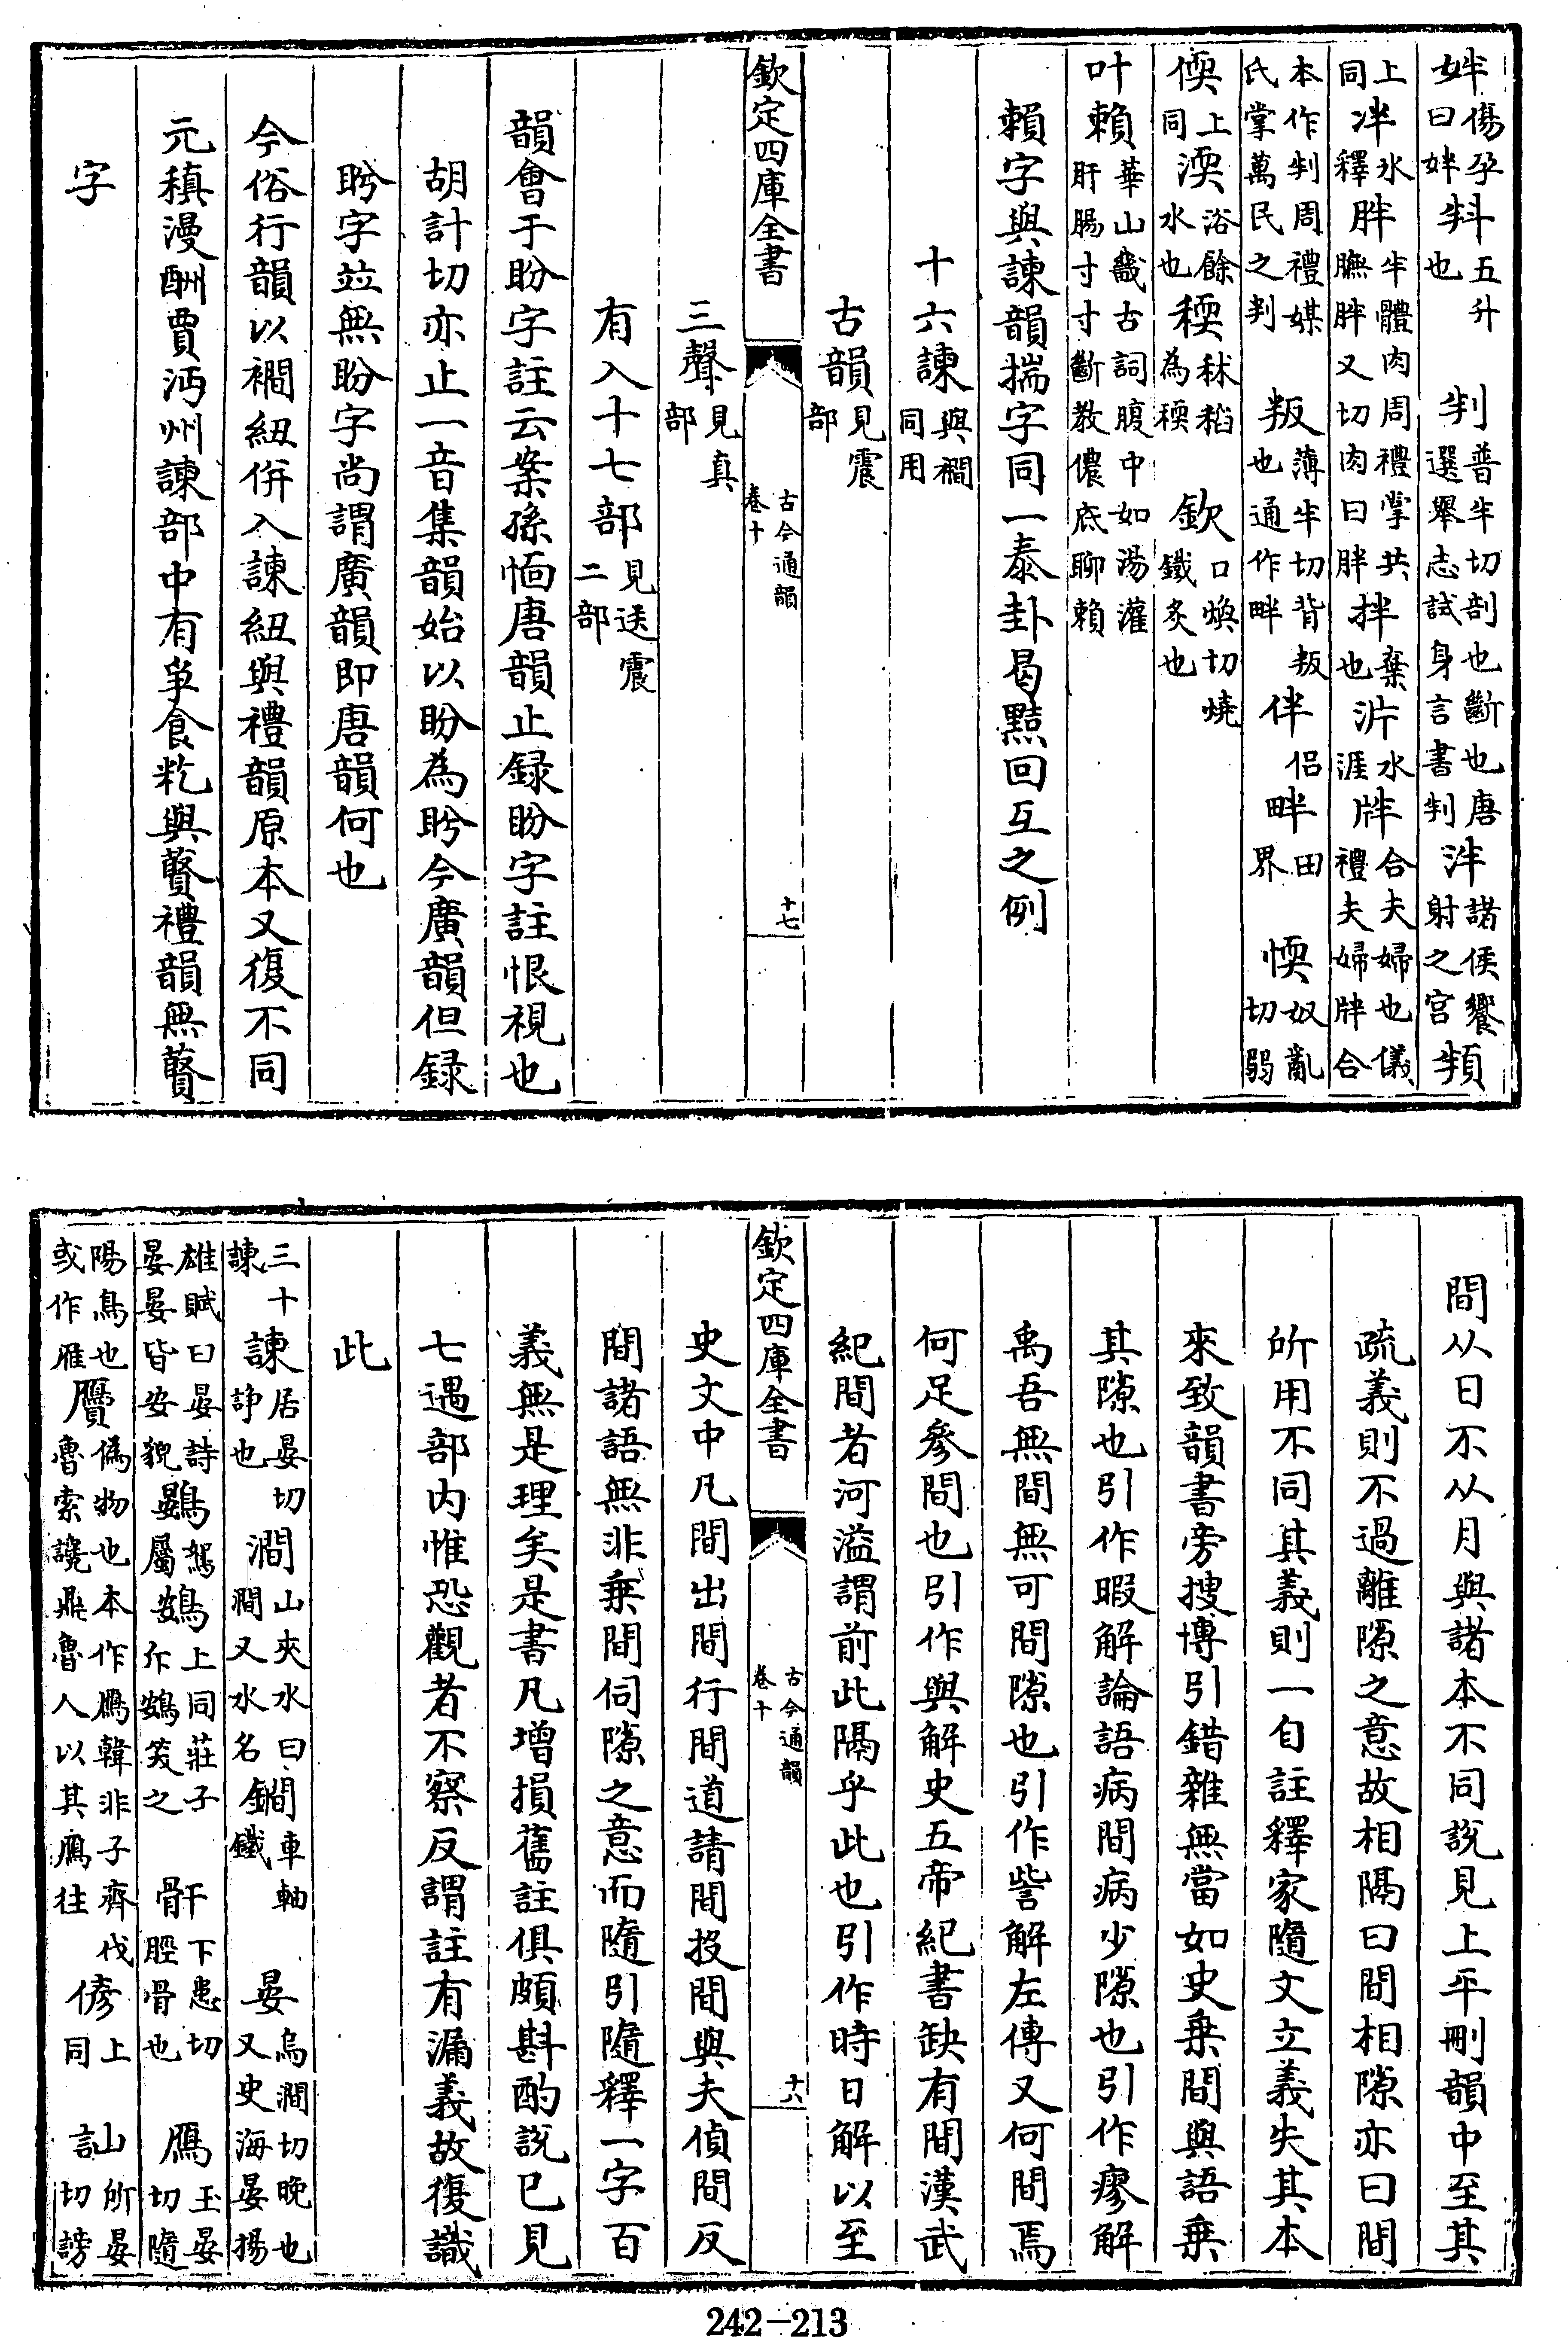 姅傷孕曰姅㪵五升也 判普半切剖也斷也唐選舉志試身言書判泮諸侯饗射之宮頖
上同冸冰釋胖半體肉周禮掌共膴胖又切肉曰胖拌棄也沜水涯牉合夫婦也儀禮夫婦牉合
本作判周禮媒氏掌萬民之判 叛薄半切背叛也通作畔伴侶畔田界 愞奴亂切弱
偄上同渜浴餘水也稬秫稻為稬 欨口煥切燒鐵炙也
叶賴華山畿古詞腹中如湯灌肝腸寸寸斷教儂底聊賴
賴字與諫韻揣字同一泰卦曷黠回互之例
十六諫與襉同用
古韻見震部
欽定四庫全書 古今通韻卷十 十七
三聲見真部
有入十七部見送震二部
韻會于盼字註云案孫愐唐韻止録盼字註恨視也
胡計切亦止一音集韻始以盼為盻今廣韻但録
盻字並無盼字尚謂廣韻即唐韻何也
今俗行韻以襉紐併入諫紐與禮韻原本又復不同
元稹漫酬賈沔州諫部中有爭食㸩與贀禮韻無贀
字
間从日不从月與諸本不同說見上平刪韻中至其
疏義則不過離隙之意故相隔曰間相隙亦曰間
所用不同其義則一自註釋家隨文立義失其本
來致韻書旁搜博引錯雜無當如史乗間與語乗
其隙也引作暇解論語病間病少隙也引作瘳解
禹吾無間無可間隙也引作訾解左傳又何間焉
何足參間也引作與解史五帝紀書缺有間漢武
紀間者河溢謂前此隔乎此也引作時日解以至
欽定四庫全書 古今通韻卷十 十八
史文中凡間出間行間道請間投間與夫偵間反
間諸語無非乗間伺隙之意而隨引隨釋一字百
義無是理矣是書凡增損舊註俱頗斟酌說已見
七遇部内惟恐觀者不察反謂註有漏義故復識
此
三十諫諫居晏切諍也 澗山夾水曰澗又水名鐧車軸鐵 晏烏澗切晚也又史海晏揚
雄賦曰晏詩晏晏皆安貌鷃鴽屬鴳上同莊子斥鴳笑之 骭下患切脛骨也 鴈玉晏切隨
陽鳥也或作雁贗偽物也本作鴈韓非子齊伐魯索讒鼎魯人以其鴈往偐上同 訕所晏切謗
242-213